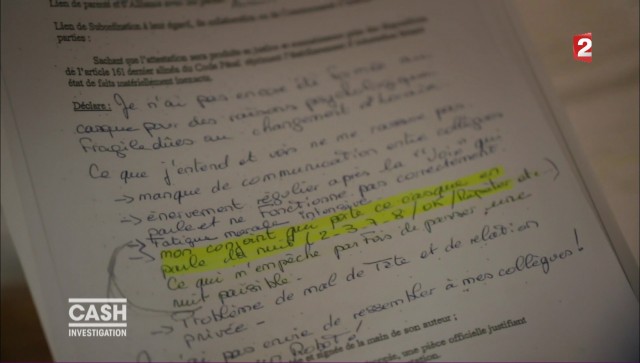 Lien de parenté et d'Alliance avec les parties
Lien de Subordination à leur égard, de collaboration ou de Communauté d'
parties :
2
Sachant que l'attestation sera produite en justice et
de l'article 161 dernier alinéa du Code Pénal
état de faits matériellement inexacts.
Déclare : Je n'ai pas encore été formée au
casque pour des raisons psychologique
Fragile dûes au changement d'horaire
Ce que j'entend et vois ne me rassure pas.
→ manque de communication entre collègues
→ énervement régulier après la "Voie" qui
parle et ne fonctionne pas correctement
→ Fatigue morale intensive
mon conjoint qui porte ce casque en
parle la nuit (2-3-7-8/OK/Répéter etc...)
Ce qui m'empêche parfois de passer une
nuit paisible.
→ Problème de mal de Tête et de relation
privée -
Je n'ai pas envie de ressembler à mes collègues !
un Robot !
et signée de la main de son auteur ;
une pièce officielle justifiant
CASH
INVESTIGATION